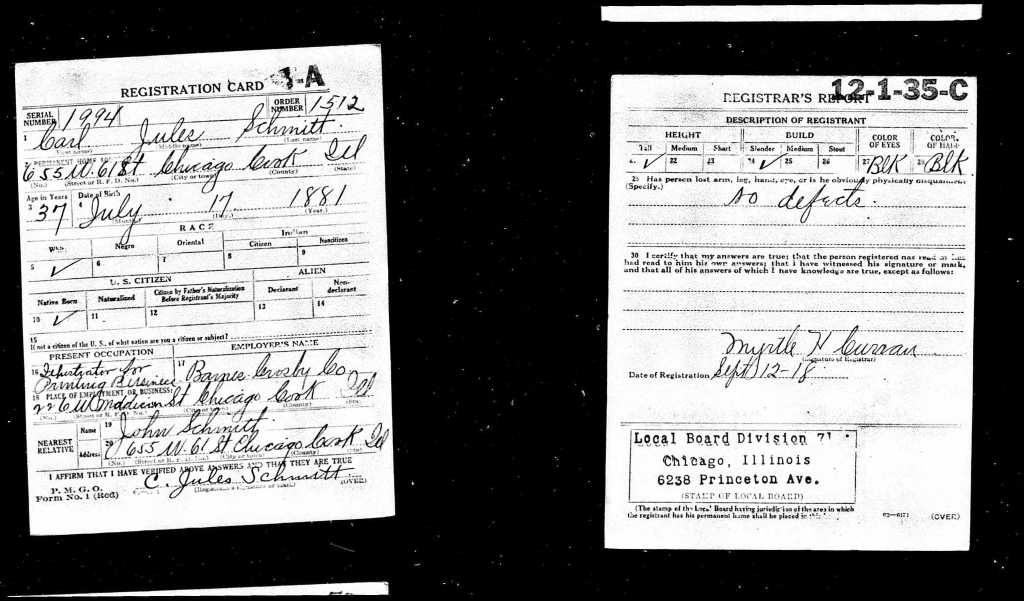 REGISTRATION CARD
SERIAL NUMBER 1994 ORDER NUMBER 1512
1 Carl Jules Schmitt
(First name) (Middle name) (Last name)
2 PERMANENT HOME ADDRESS:
655 W. 61 St Chicago Cook Ill
(No.) (Street or R. F. D. No.) (City or town) (County) (State)
Age in Years Date of Birth
3 37 4 July 17 1881
(Month.) (Day.) (Year.)
RACE
White Negro Oriental Indian
Citizen Noncitizen
5 ✓ 6 7 8 9
U. S. CITIZEN ALIEN
Native Born Naturalized Citizen by Father's Naturalization Before Registrant's Majority Declarant Non-declarant
10 ✓ 11 12 13 14
15
If not a citizen of the U. S., of what nation are you a citizen or subject?
PRESENT OCCUPATION EMPLOYER'S NAME
16 for Printing Business 17 Barnes Crosby Co
18 PLACE OF EMPLOYMENT OR BUSINESS:
226 W Maddison St Chicago Cook Ill
(No.) (Street or R. F. D. No.) (City or town) (County) (State)
NEAREST RELATIVE Name 19 John Schmitt
Address 20 655 W. 61 St Chicago Cook Ill
(No.) (Street or R. F. D. No.) (City or town) (County)
I AFFIRM THAT I HAVE VERIFIED ABOVE ANSWERS AND THAT THEY ARE TRUE
P. M. G. O.
Form No. 1 (Red) C. Jules Schmitt
(Registrant's signature or mark) (OVER)
12-1-35-C
REGISTRAR'S REPORT
DESCRIPTION OF REGISTRANT
HEIGHT BUILD COLOR OF EYES COLOR OF HAIR
Tall Medium Short Slender Medium Stout
21 ✓ 22 23 24 ✓ 25 26 27 Blk 28 Blk
29 Has person lost arm, leg, hand, eye, or is he obviously physically disqualified?
(Specify.)
No defects.
30 I certify that my answers are true; that the person registered has read or has
had read to him his own answers; that I have witnessed his signature or mark,
and that all of his answers of which I have knowledge are true, except as follows:
Myrtle H Curran
(Signature of Registrar)
Date of Registration Sept 12-18
Local Board Division 71
Chicago, Illinois
6238 Princeton Ave.
(STAMP OF LOCAL BOARD)
(The stamp of the Local Board having jurisdiction of the area in which
the registrant has his permanent home shall be placed in this
(OVER)